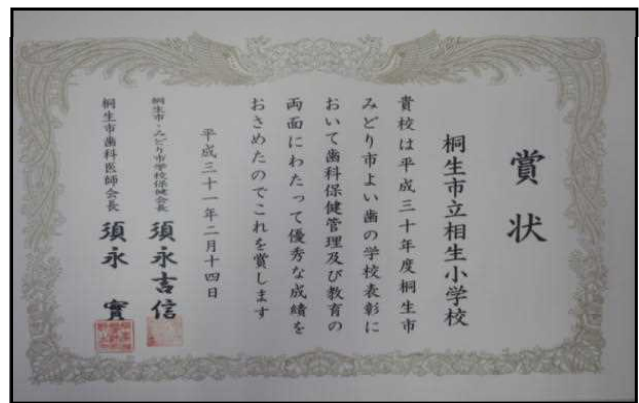 賞状
桐生市立相生小学校
貴校は平成三十年度桐生市
みどり市よい歯の学校表彰に
おいて歯科保健管理及び教育の
両面にわたって優秀な成績を
おさめたのでこれを賞します
平成三十一年二月十四日
桐生市・みどり市学校保健会長 須永吉信
桐生市歯科医師会長 須永 實